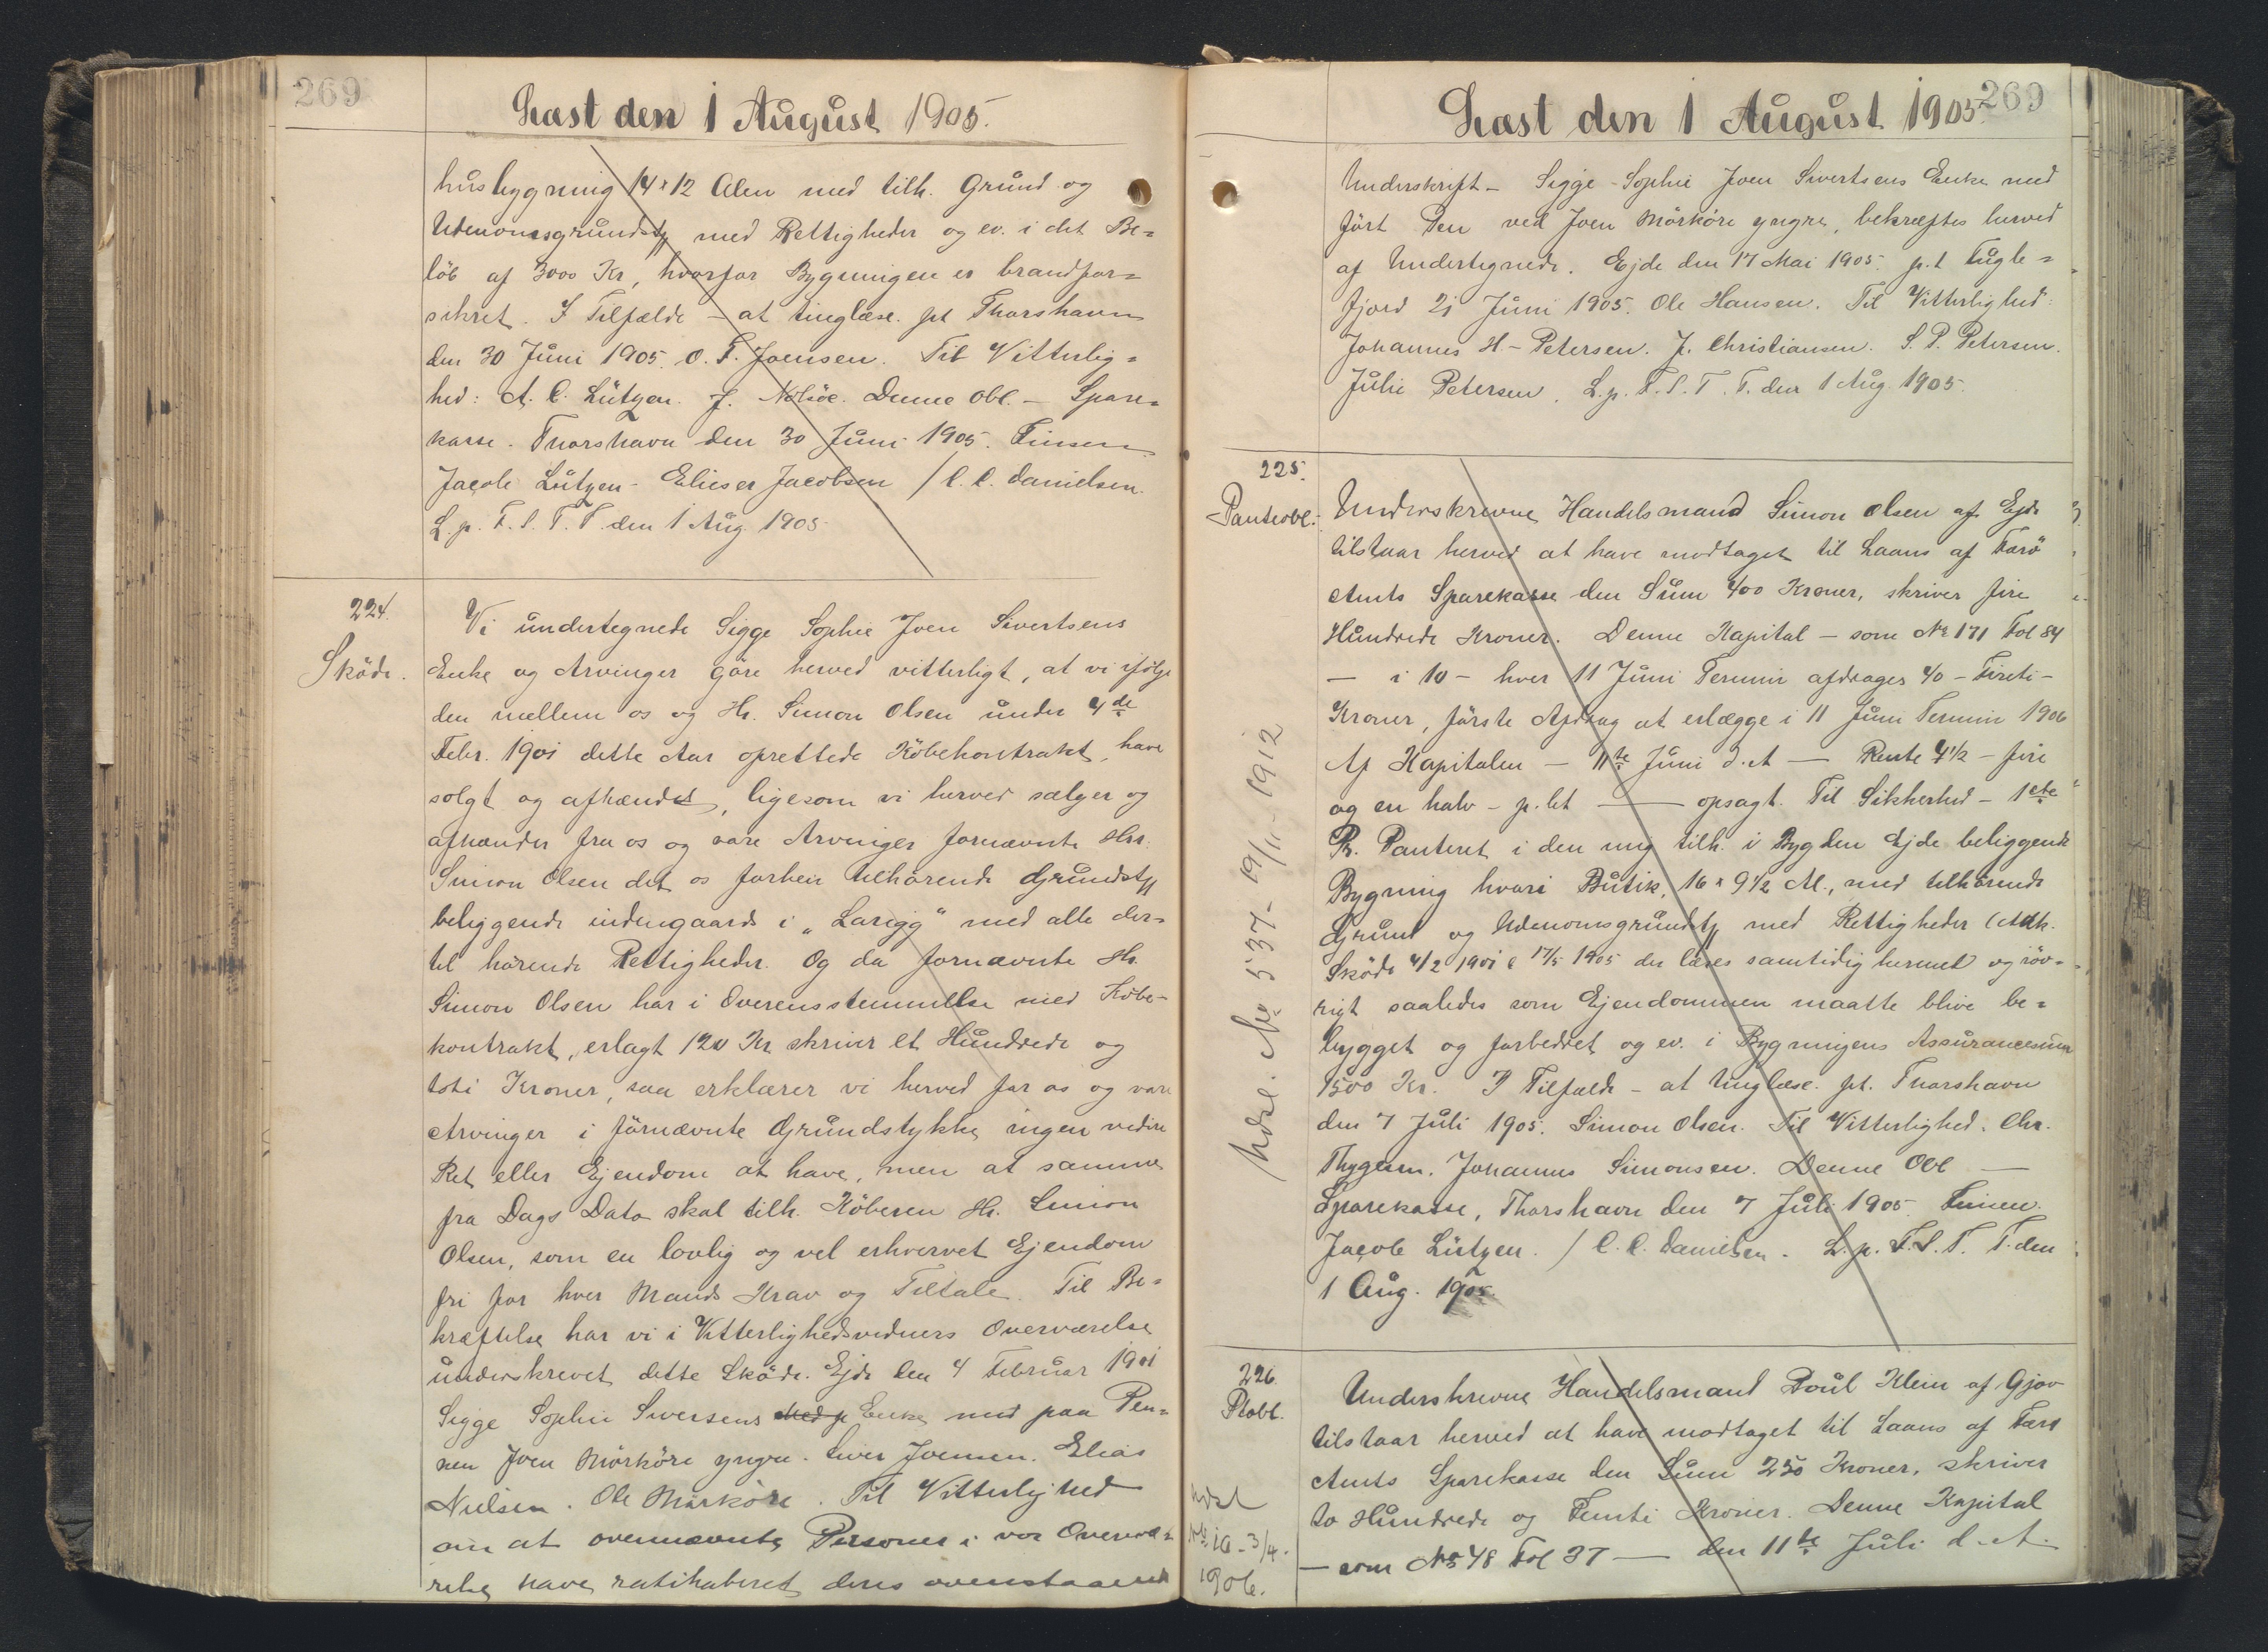 269
Læst den 1 August 1905.
husbygning 14 x 12 Alen med tilh. Grund og
Udenomsgrundst. med Rettigheder og ev. i det Be=
löb af 3000 Kr, hvorfor Bygningen er brandfor=
sikret. I Tilfælde - at tinglæse. pt Thorshavn
den 30 Juni 1905. O. F. Joensen. Til Vitterlig=
hed: A. C. Lützen. J. Nolsöe. Denne Obl. - Spare=
kasse. Thorshavn den 30 Juni 1905. Finsen
Jacob Lützen - Elieser Jacobsen / C. C. Danielsen.
L. p. F. S. T. T. den 1 Aug. 1905.
224.
Sköde.
Vi undertegnede Sigge Sophie Joen Sivertsens
Enke og Arvinger göre herved vitterligt, at vi ifölge
den mellem os og Hr. Simon Olsen under 4de
Febr. 1901 dette Aar oprettede Köbekontrakt, have
solgt og afhændet, ligesom vi herved sælger og
afhænder fra os og vore Arvinger fornævnte Hr.
Simon Olsen det os forhen tilhörende Grundst.
beliggende indengaards i "Larigg" med alle der=
til hörende Rettigheder. Og da fornævnte Hr.
Simon Olsen har i Overensstemmelse med Köbe-
kontrakt, erlagt 120 Kr skriver et Hundrede og
toti Kroner, saa erklærer vi herved for os og vore
Arvinger i förnævnte Grundstykke ingen videre
Ret eller Ejendom at have, men at samme
fra Dags Dato skal tilh. Köberen Hr. Simon
Olsen, som en lovlig og vel erhvervet Ejendom
fri for hver Mands Krav og Tiltale. Til Be=
kræftelse har vi i Vitterlighedsvidners Overværelse
underskrevet dette Sköde. Ejde den 4 Februar 1901
Sigge Sophie Siversens Enke med paa Pen=
nen Joen Mörköre yngre. Siver Joensen. Elias
Nielsen. Ole Mörköre. Til Vitterlighed
om at ovennævnte Personer i vor Overvæ=
relse have ratihaberet deres ovenstaaende
269
Læst den 1 August 1905.
Underskrift - Sigge-Sophie Joen Sivertsens Enke med
fört Pen ved Joen Mörköre yngre, bekræftes herved
af Undertegnede. Ejde den 17 Mai 1905. p.t Fugle=
fjord 21 Juni 1905. Ole Hansen. Til Vitterlighed:
Johannes H. - Petersen. J. Christiansen. S. P. Petersen.
Julie Petersen. L. p. F. S. T. T. den 1 Aug. 1905.
225.
Panteobl.
Underskrevne Handelsmand Simon Olsen af Ejde
tilstaar herved at have modtaget til Laans af Færö
Amts Sparekasse den Sum 400 Kroner, skriver fire
Hundrede Kroner. Denne Kapital - som No 171 Fol 84
- i 10 - hver 11 Juni Termin afdrages 40 - Fireti -
Kroner, förste Afdrag at erlægge i 11 Juni Termin 1906
Af Kapitalen - 11te Juni d. A - Rente 4 1/2 - fire
og en halv - p. Ct - opsagt. Til Sikkerhed - 1ste
Pr. Panteret i den mig tilh. i Bygden Ejde beliggende
Bygning hvori Butik, 16 x 9 1/2 Al., med tilhörende
Grund og Udenomsgrundst. med Rettigheder (Adk.
Sköde 4/2 1901 & 17/5 1905 der læses samtidig hermed og iöv=
rigt saaledes som Ejendommen maatte blive be=
bygget og forbedret og ev. i Bygningens Assurancesum
1500 Kr. I Tilfælde - at tinglæse. pt. Thorshavn
den 7 Juli 1905. Simon Olsen. Til Vitterlighed. Chr.
Thygesen. Johannes Simonsen. Denne Obl -
Sparekasse, Thorshavn den 7 Juli 1905. Finsen.
Jacob Lützen. / C. C. Danielsen. L. p. F. S. T. T. den
1 Aug. 1905.
Udsl. No 537 - 19/11 - 1912
226.
Ptobl.
Underskrevne Handelsmand Poul Klein af Gjov
tilstaar herved at have modtaget til Laans af Færö
Amts Sparekasse den Sum 250 Kroner, skriver
to Hundrede og Femti Kroner. Denne Kapital
- som No 48 Fol 37 - den 11te Juli d. A.
Udsl
No 10 - 3/4 -
1906.